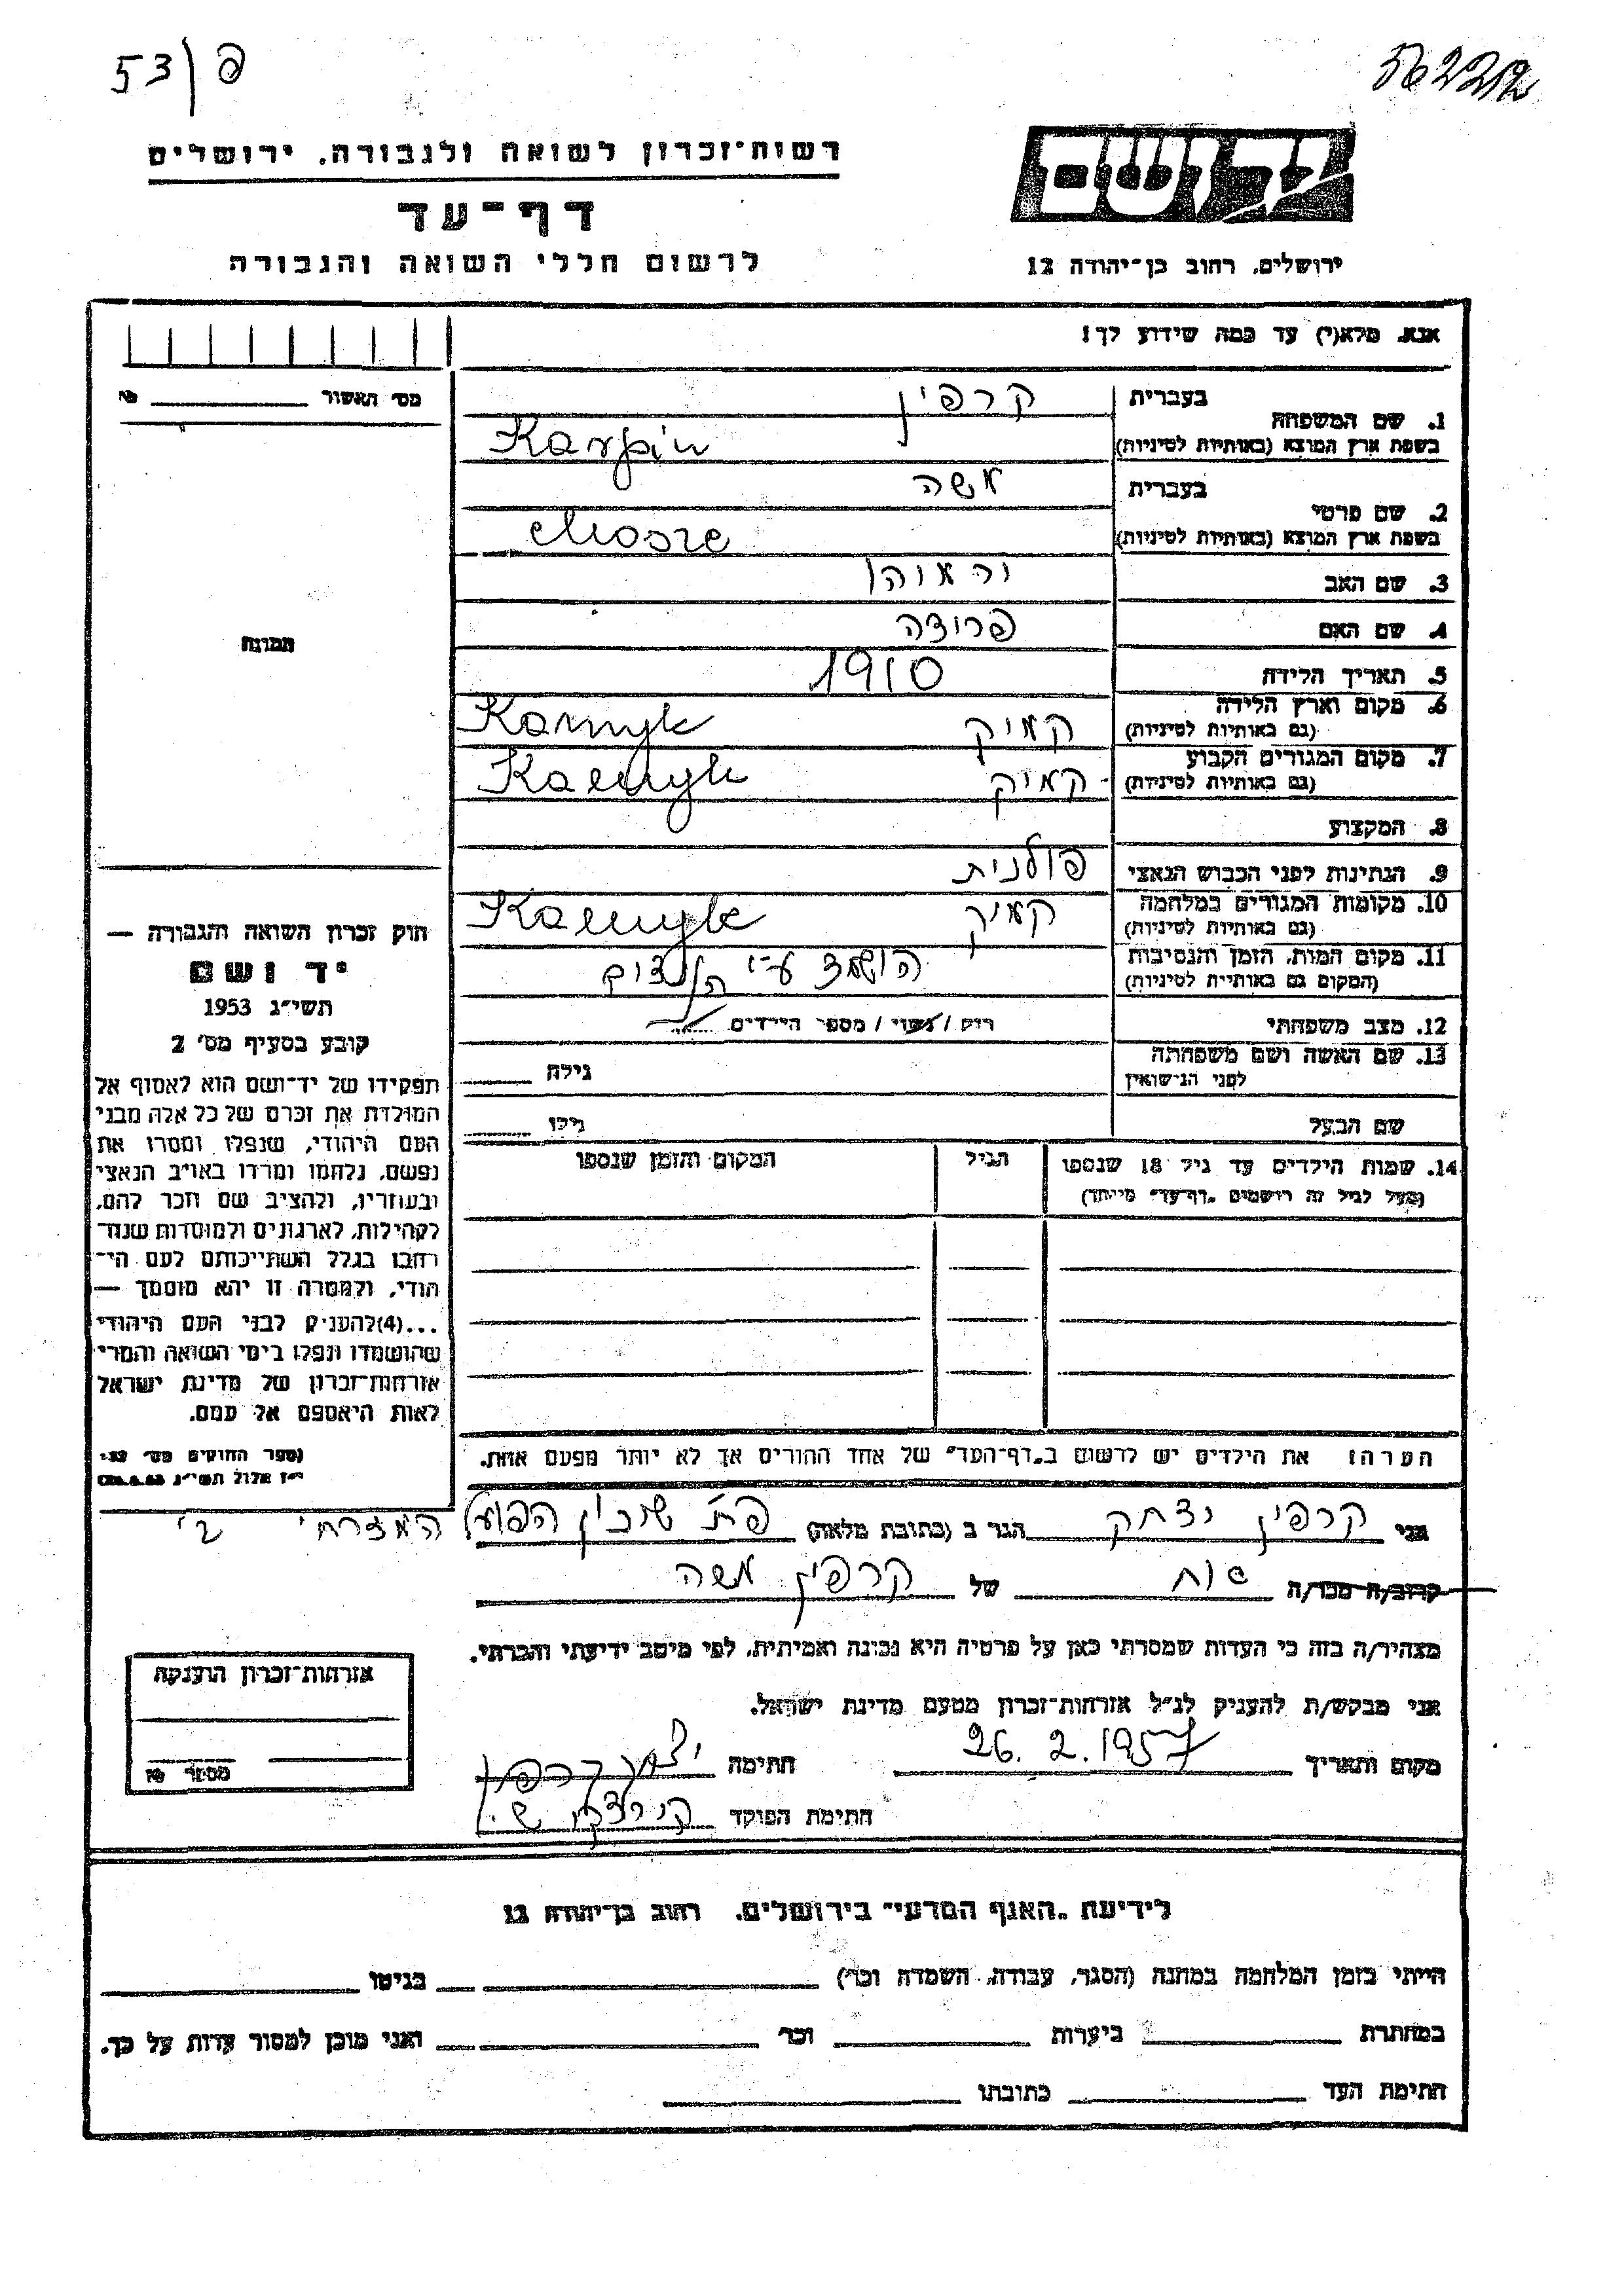 53/פ
56222
רשות־זכרון לשואה ולגבורה, ירושלים
דף־עד
לרשום חללי השואה והגבורה
יד ושם
ירושלים, רחוב בן־יהודה 12
אנא, מלא(י) עד כמה שידוע לך!
מס׳ האשור №
1. שם המשפחה
בעברית קרפין
בשפת ארץ המוצא (באותיות לטיניות) Karpin
2. שם פרטי
בעברית משה
בשפת ארץ המוצא (באותיות לטיניות) Mosze
3. שם האב
4. שם האם
5. תאריך הלידה 1910
6. מקום וארץ הלידה
(גם באותיות לטיניות) קמיק Kamyk
7. מקום המגורים הקבוע
(גם באותיות לטיניות) קמיק Kamyk
8. המקצוע
9. הנתינות לפני הכבוש הנאצי פולנית
10. מקומות המגורים במלחמה
(גם באותיות לטיניות) קמיק Kamyk
11. מקום המות, הזמן והנסיבות
(המקום גם באותיות לטיניות) הושמד ע״י הנצים
12. מצב משפחתי רוק / נשוי / מספר הילדים
13. שם האשה ושם משפחתה
לפני הנישואין גילה
שם הבעל גילו
14. שמות הילדים עד גיל 18 שנספו הגיל המקום והזמן שנספו
(מעל לגיל זה רושמים „דף־עד״ מיוחד)
הערה: את הילדים יש לרשום ב„דף־העד״ של אחד ההורים אך לא יותר מפעם אחת.
תמונה
חוק זכרון השואה והגבורה —
יד ושם
תשי״ג 1953
קובע בסעיף מס׳ 2
תפקידו של יד־ושם הוא לאסוף אל
המולדת את זכרם של כל אלה מבני
העם היהודי, שנפלו ומסרו את
נפשם, נלחמו ומרדו באויב הנאצי
ובעוזריו, ולהציב שם וזכר להם,
לקהילות, לארגונים ולמוסדות שנח־
רבו בגלל השתייכותם לעם הי־
הודי, ולמטרה זו יהא מוסמך —
...(4) להעניק לבני העם היהודי
שהושמדו ונפלו בימי השואה והמרי
אזרחות־זכרון של מדינת ישראל
לאות היאספם אל עמם.
(ספר החוקים מס׳ 132,
י״ז אלול תשי״ג 28.8.53)
אני קרפין יצחק הגר ב (כתובת מלאה) פ״ת שיכון הפועל המזרחי ב׳
קרוב/ה מכר/ה אח של קרפין משה
מצהיר/ה בזה כי העדות שמסרתי כאן על פרטיה היא נכונה ואמיתית, לפי מיטב ידיעתי והכרתי.
אני מבקש/ת להעניק לנ״ל אזרחות־זכרון מטעם מדינת ישראל.
מקום ותאריך 26.2.1957 חתימה יצחק קרפין
חתימת הפוקד
אזרחות־זכרון הוענקה
מספר №
לידיעת „האגף המדעי״ בירושלים, רחוב בן־יהודה 12
הייתי בזמן המלחמה במחנה (הסגר, עבודה, השמדה וכו׳) בגיטו
במחתרת ביערות וכו׳ ואני מוכן למסור עדות על כך.
חתימת העד כתובתו